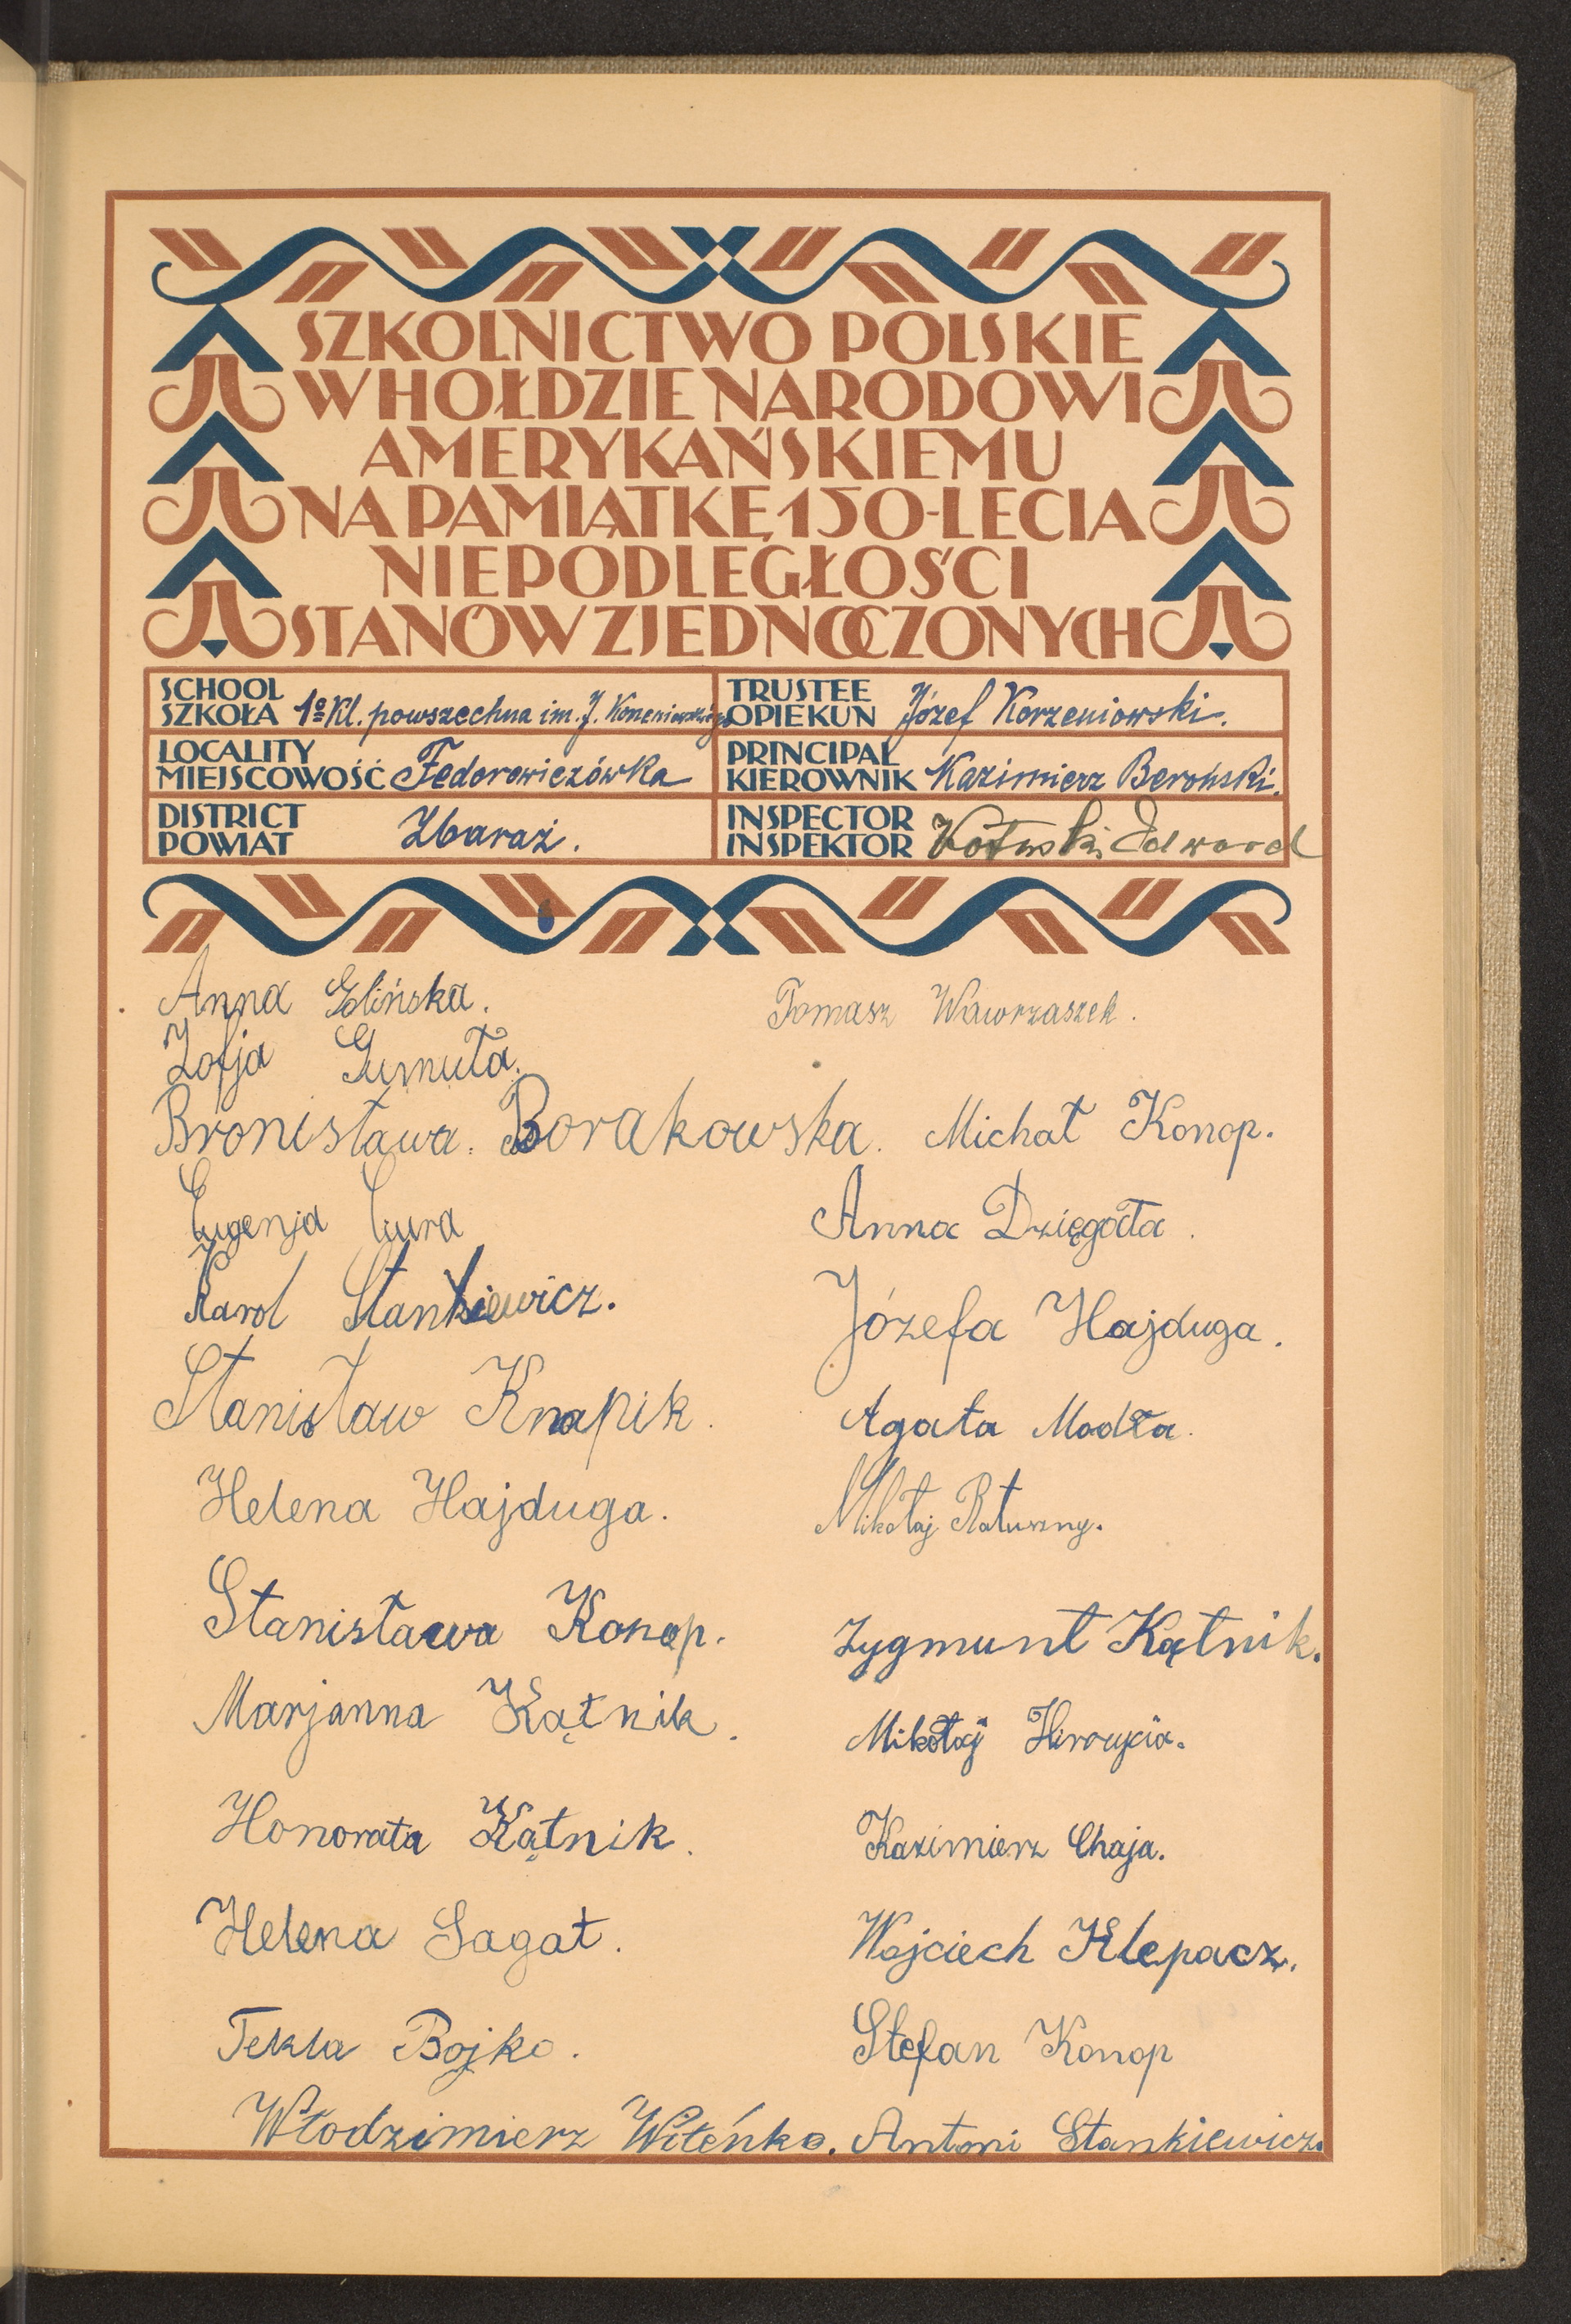 SZKOLNICTWO POLSKIE
W HOŁDZIE NARODOWI
AMERYKAŃSKIEMU
NA PAMIĄTKĘ 150-LECIA
NIEPODLEGŁOŚCI
STANÓW ZJEDNOCZONYCH
SCHOOL
SZKOŁA 1º Kl. powszechna im. J.
TRUSTEE
OPIEKUN Józef Korzeniowski.
LOCALITY
MIEJSCOWOŚĆ Fedorowiczówka
PRINCIPAL
KIEROWNIK Kazimierz Beroński.
DISTRICT
POWIAT Zbaraż.
INSPECTOR
INSPEKTOR Edward
Anna Golińska.
Zofja Gumuła.
Bronisława. Borakowska.
Eugenja Cura
Karol Stankiewicz.
Stanisław Knapik.
Helena Hajduga.
Stanisława Konop.
Marjanna Kątnik.
Honorata Kątnik.
Helena Sagat.
Tekla Bojko.
Włodzimierz Witeńko.
Tomasz Wawrzaszek.
Michał Konop.
Anna Dzięgała.
Józefa Hajduga.
Agata Modła.
Mikołaj Ratuszny.
Zygmunt Kątnik.
Mikołaj
Kazimierz Chaja.
Wojciech Klepacz.
Stefan Konop
Antoni Stankiewicz.